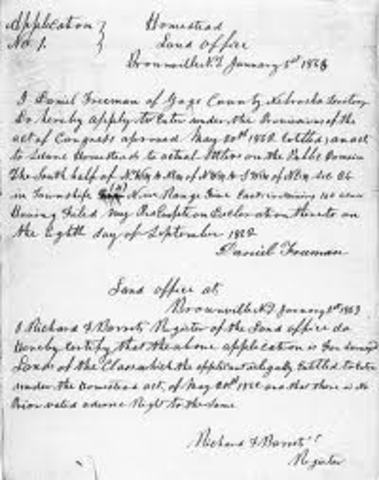 Application } Homestead
No 1. } Land Office
Brownville N.T. January 1st 1863
I Daniel Freeman of Gage County Nebraska Territory
Do hereby apply to Enter under the Provisions of the
act of Congress aproved May 20th 1862 Entitled, an act
to Secure Homesteads to actual Settlers on the Public Domain
The South half of N.W¼ & N.E¼ of N.W¼ & S.W¼ of N.E¼ Sec 26
in Township Four (4) N in Range Five East containing 160 acres
Having Filed my PreEmption Declaration thereto on
the Eighth day of September 1862
Daniel Freeman
Land office at
Brownville N.T. January 1st 1863
I Richard F Barret, Register of the Land office do
hereby certify that the above application is for Surveyed
Lands of the Class which the applicant is legally Entitled to Enter
under the Homestead act, of May 20th 1862 and that there is no
Prior valid adverse Right to the Same
Richard F Barret
Register